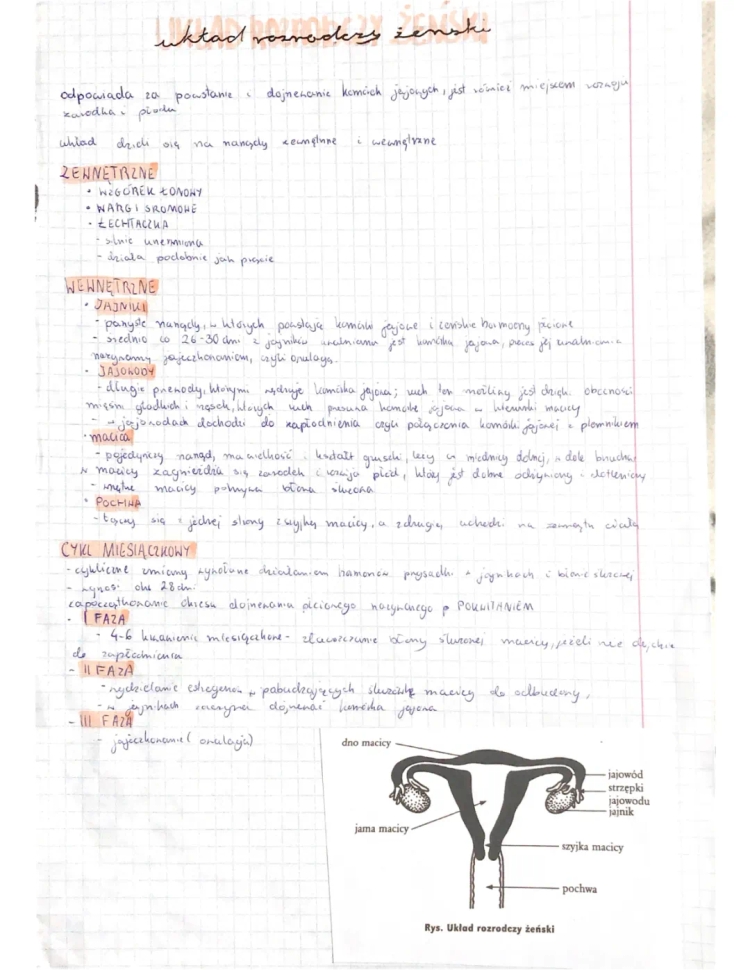 układ rozrodczy żeński
odpowiada za powstanie i dojrzewanie komórek jajowych, jest również miejscem rozwoju
zarodka i płodu
układ dzieli się na narządy zewnętrzne i wewnętrzne
ZEWNĘTRZNE
• WZGÓREK ŁONOWY
• WARGI SROMOWE
• ŁECHTACZKA
- silnie unerwiona
- działa podobnie jak prącie
WEWNĘTRZNE
• JAJNIKI
- parzyste narządy, w których powstają komórki jajowe i żeńskie hormony płciowe
- średnio co 26-30 dni z jajników uwalniana jest komórka jajowa, proces jej uwalniania
nazywamy jajeczkowaniem, czyli owulacją.
• JAJOWODY
- długie przewody, którymi wędruje komórka jajowa; ruch ten możliwy jest dzięki obecności
mięśni gładkich i rzęsek, których ruch przesuwa komórkę jajową w kierunku macicy
- w jajowodach dochodzi do zapłodnienia czyli połączenia komórki jajowej z plemnikiem
• macica
- pojedynczy narząd, ma wielkość i kształt gruszki, leży w miednicy dolnej, w dole brzucha
w macicy zagnieżdża się zarodek i rozwija płód, który jest dobrze odżywiony i dotleniony
- wnętrze macicy pokrywa błona śluzowa
• POCHWA
- łączy się z jednej strony z szyjką macicy, a z drugiej uchodzi na zewnątrz ciała
CYKL MIESIĄCZKOWY
- cykliczne zmiany wywołane działaniem hormonów przysadki w jajnikach i błonie śluzowej
- wynosi ok. 28 dni
zapoczątkowanie okresu dojrzewania płciowego nazywanego POKWITANIEM
- I FAZA
- 4-6 krwawienie miesiączkowe - złuszczanie błony śluzowej macicy, jeżeli nie dojdzie
do zapłodnienia
- II FAZA
- wydzielanie estrogenów pobudzających śluzówkę macicy do odbudowy,
- w jajnikach zaczyna dojrzewać komórka jajowa
- III FAZA
- jajeczkowanie (owulacja)
dno macicy
jajowód
strzępki
jajowodu
jajnik
jama macicy
szyjka macicy
pochwa
Rys. Układ rozrodczy żeński